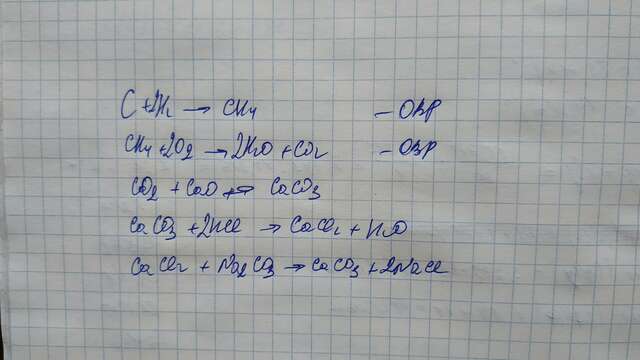 C + 2H₂ → CH₄ – ОВР
CH₄ + 2O₂ → 2H₂O + CO₂ – ОВР
CO₂ + CaO ⇄ CaCO₃
CaCO₃ + 2HCl → CaCl₂ + H₂O
CaCl₂ + Na₂CO₃ → CaCO₃ + 2NaCl